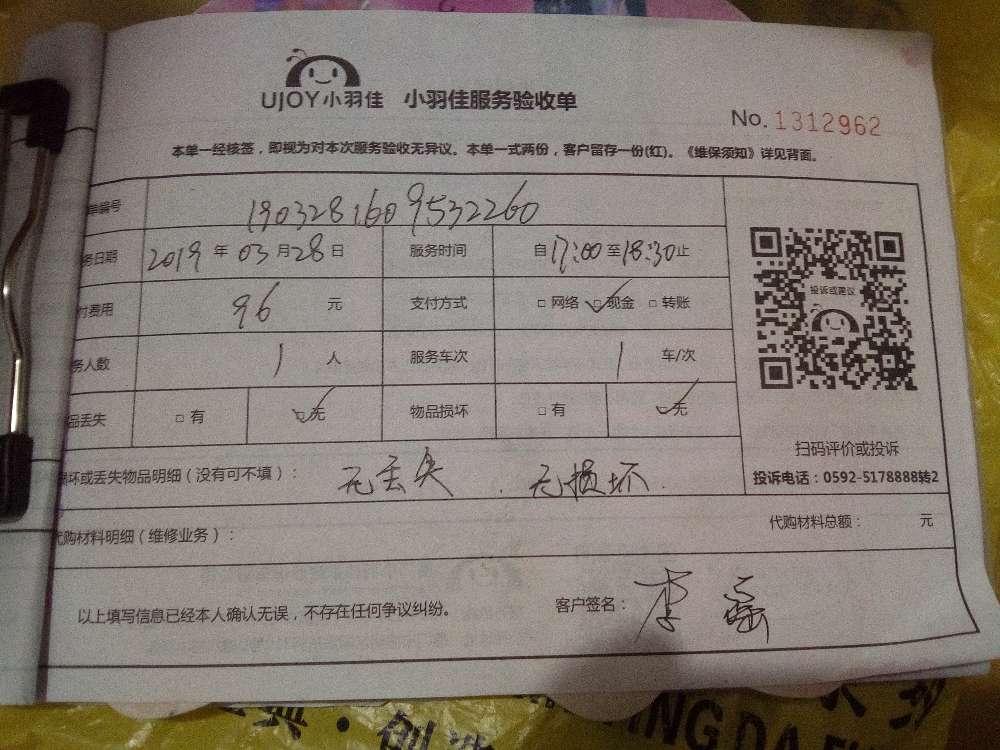 UJOY小羽佳 小羽佳服务验收单
No. 1312962
本单一经核签，即视为对本次服务验收无异议。本单一式两份，客户留存一份(红)。《维保须知》详见背面。
单编号 1903281609532260
务日期 2019 年 03 月 28 日 服务时间 自 17:00 至 18:30 止
付费用 96 元 支付方式 □ 网络 ☑ 现金 □ 转账
务人数 1 人 服务车次 1 车/次
品丢失 □ 有 ☑ 无 物品损坏 □ 有 ☑ 无
投诉或建议
扫码评价或投诉
投诉电话：0592-5178888转2
损坏或丢失物品明细（没有可不填）： 无丢失 . 无损坏.
代购材料明细（维修业务）： 代购材料总额： 元
以上填写信息已经本人确认无误，不存在任何争议纠纷。 客户签名： 李
典·创造